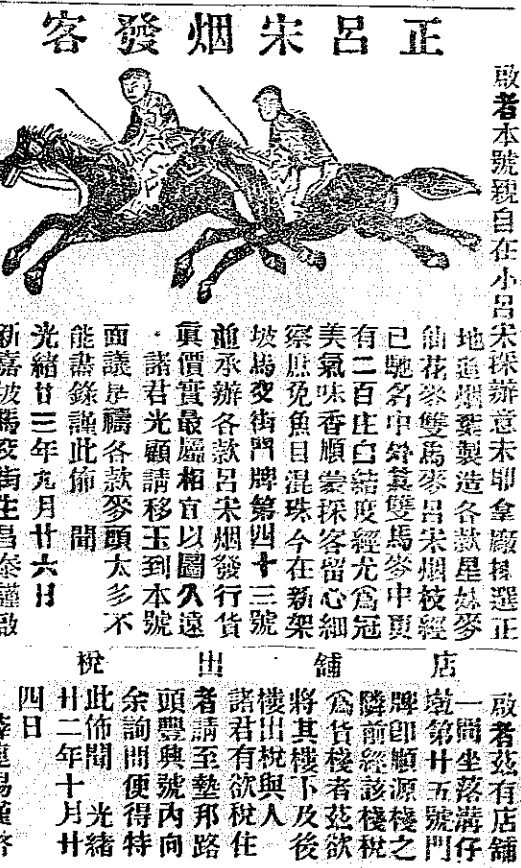 正呂宋烟發客
啟者本號親自在小呂宋採辦意未耶拿廠揀選正
地道烟葉製造各款星妹麥
仙花麥雙馬麥呂宋烟枝經
已馳名中外其雙馬麥中更
有二百庄白結度經尤為冠
美氣味香順蒙採客留心細
察庶免魚目混珠今在新架
坡馬交街門牌第四十三號
並承辦各款呂宋烟發行貨
真價實最屬相宜以圖久遠
諸君光顧請移玉到本號
面議是禱各款麥頭太多不
能盡錄謹此佈 聞
光緒廿三年九月廿六日
新嘉坡馬交街生昌泰謹啟
店舖出稅
啟者茲有店舖
一間坐落溝仔
墘第廿五號門
牌即順源棧之
隣前經該棧稅
為貨棧者茲欲
將其樓下及後
樓出稅與人
諸君有欲稅住
者請至墊邦路
頭豐興號內向
余詢問便得特
此佈聞 光緒
廿二年十月廿
四日